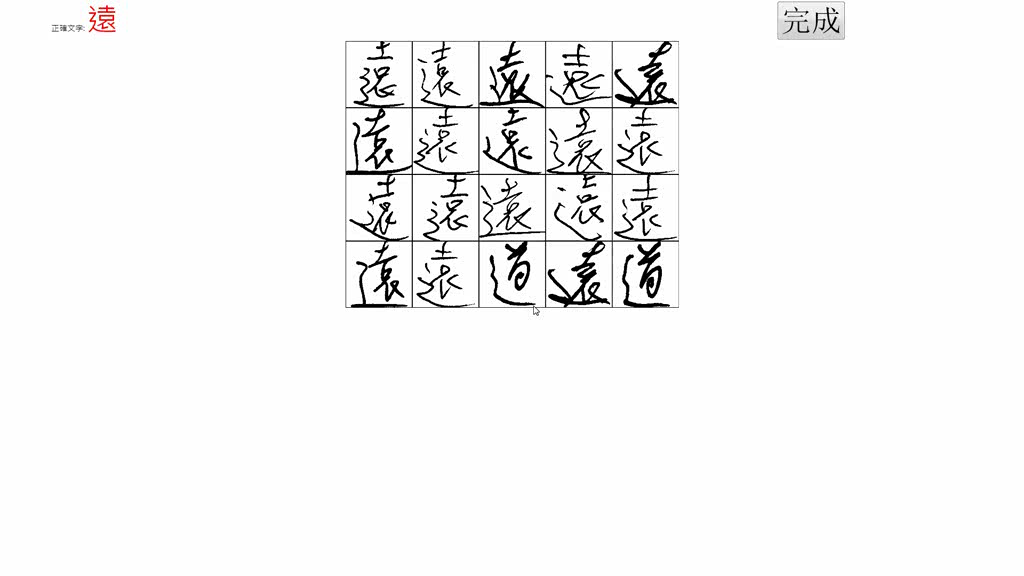 正確文字: 遠
完成
遠 遠 遠 遠 遠
遠 遠 遠 遠 遠
遠 遠 遠 遠 遠
遠 遠 道 遠 道